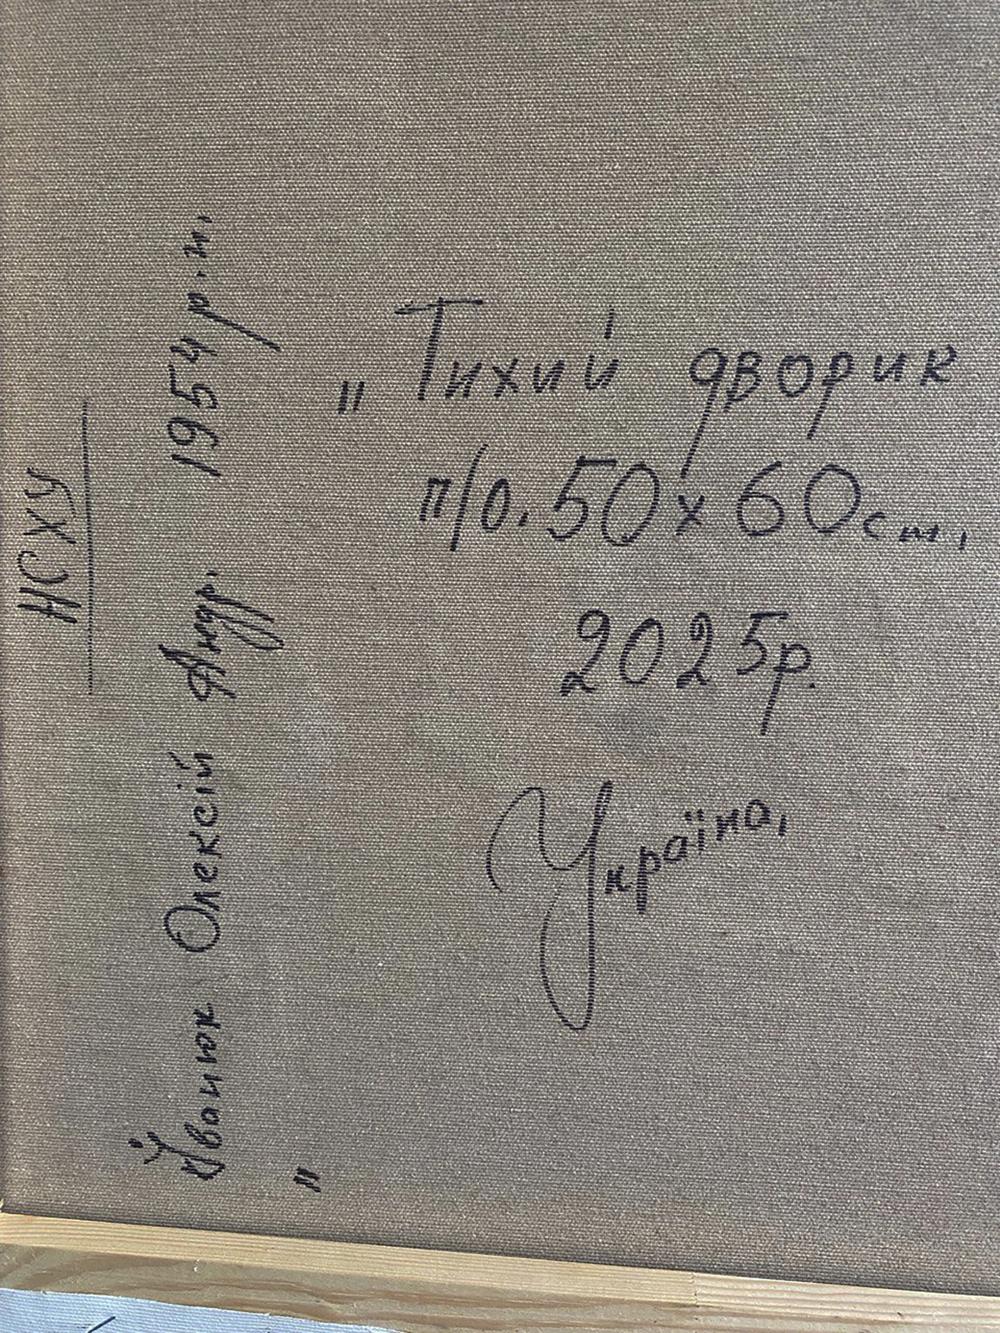 НСХУ
Іванюк Олексій Андр. 1954 р.н.
"Тихий дворик
п/о. 50х60см.
2025р.
Україна,
"